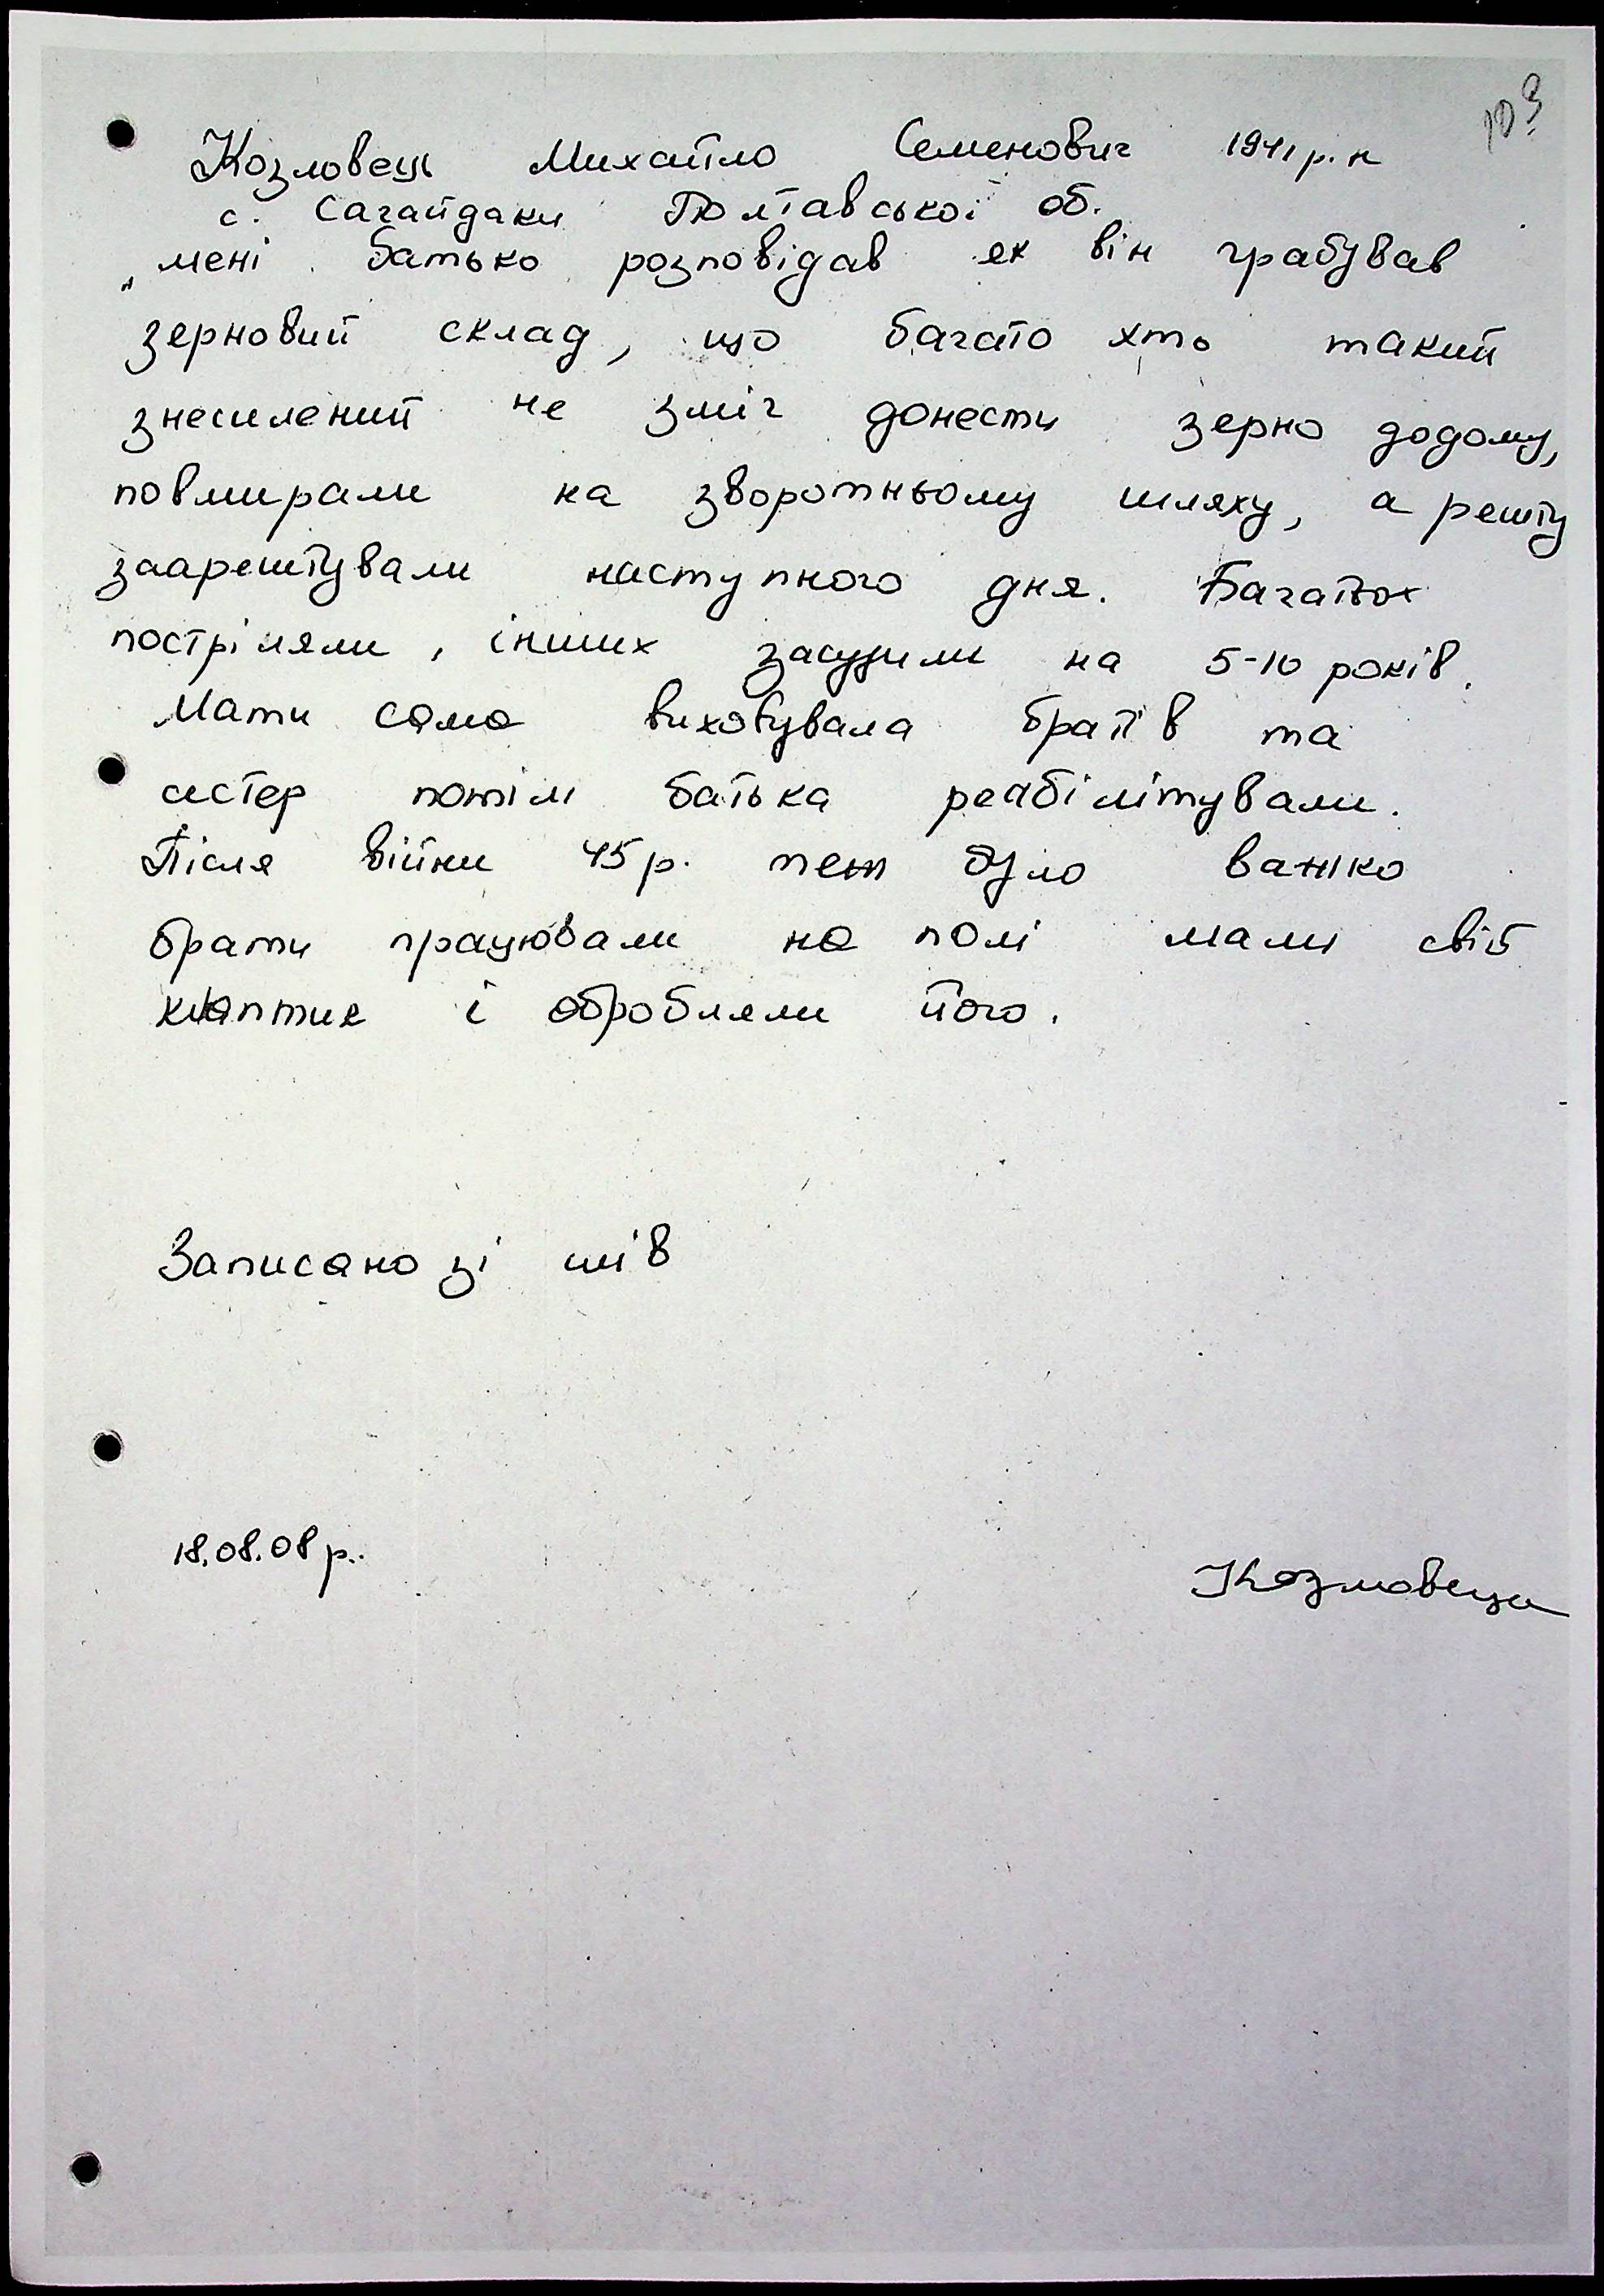 103
Козловець Михайло Семенович 1941 р. н
с. Сагайдаки Полтавської об.
„мені батько розповідав як він грабував
зерновий склад, що багато хто такий
знесилений не зміг донести зерно додому,
повмирали на зворотньому шляху, а решту
заарештували наступного дня. Багатьох
постріляли, інших засудили на 5-10 років.
Мати сама виховувала братів та
сестер потім батька реабілітували.
Після війни 45 р. теж було важко
брати працювали на полі мали свій
клаптик і обробляли його.
Записано зі слів
18.08.08 р..